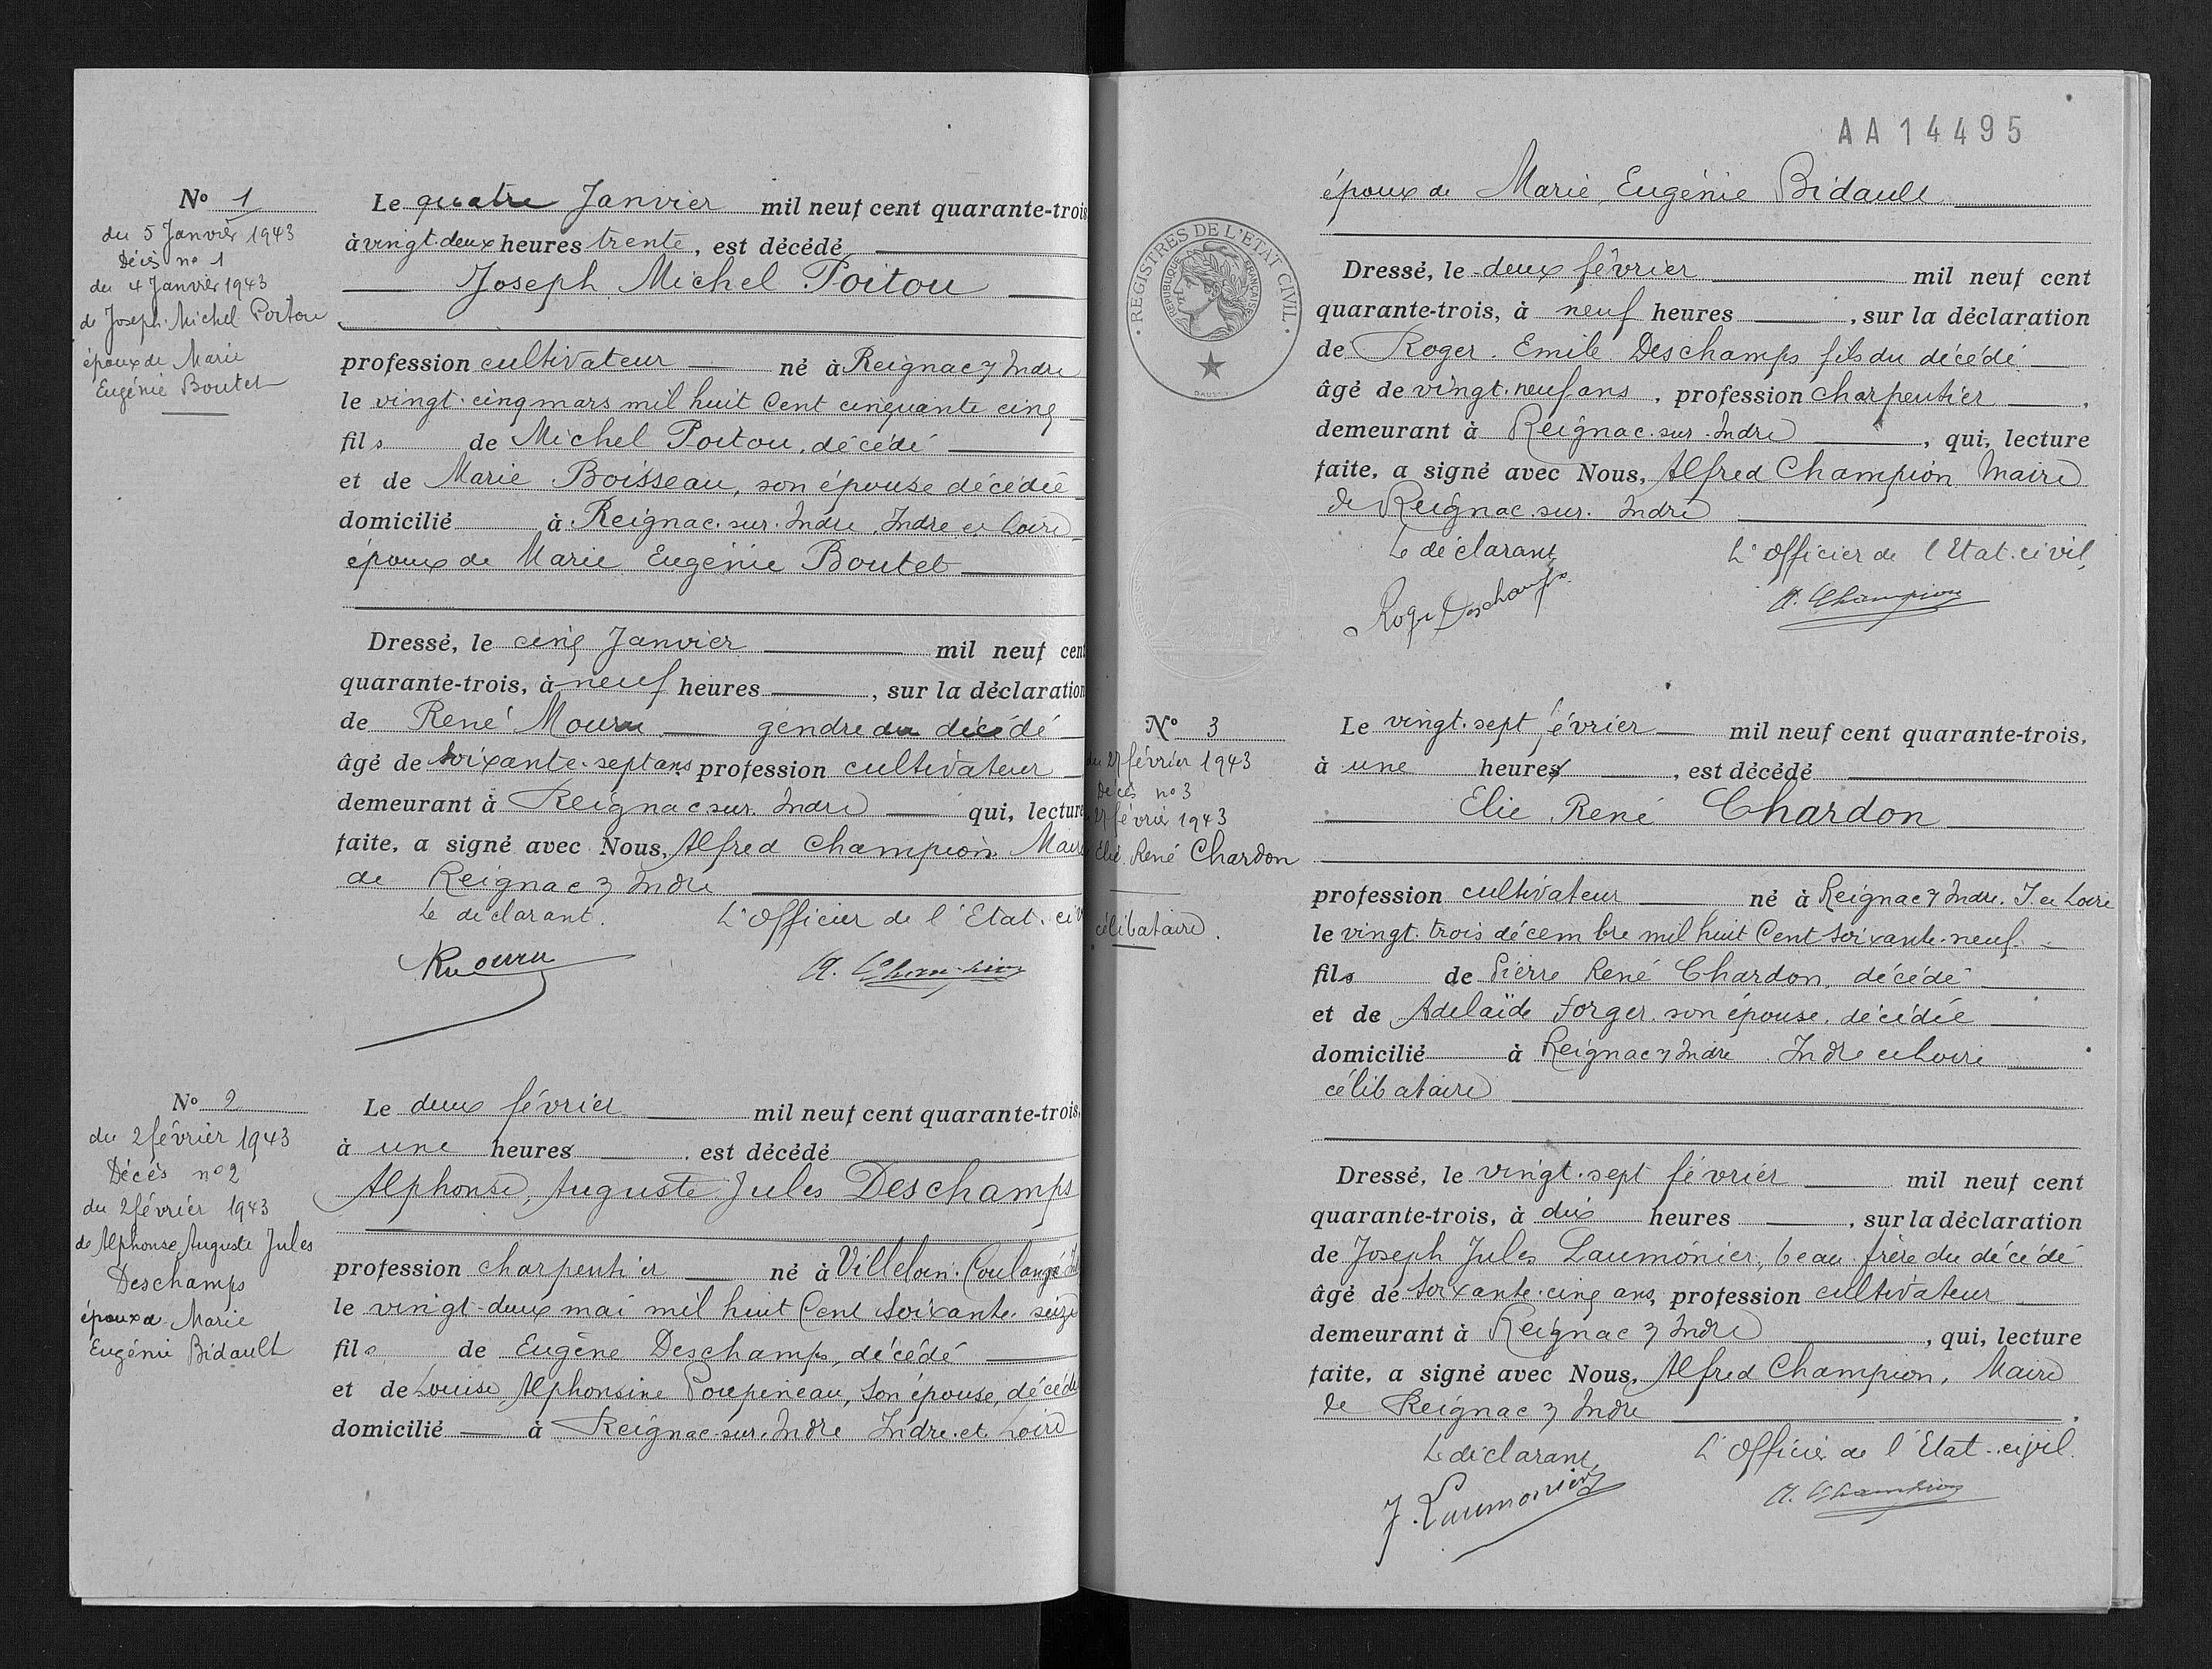 No 1
du 5 Janvier 1943
Décès no 1
du 4 Janvier 1943
de Joseph Michel Poitou
époux de Marie
Eugénie Boutet
Le quatre Janvier mil neuf cent quarante-trois
à vingt-deux heures trente, est décédé
Joseph Michel Poitou
profession cultivateur né à Reignac s/ Indre
le vingt-cinq mars mil huit Cent cinquante cinq
fils de Michel Poitou, décédé
et de Marie Boisseau, son épouse décédée
domicilié à Reignac-sur-Indre Indre et Loire
époux de Marie Eugénie Boutet
Dressé, le cinq Janvier mil neuf cent
quarante-trois, à neuf heures, sur la déclaration
de René Mouru gendre du décédé
âgé de soixante-sept ans profession cultivateur
demeurant à Reignac sur Indre qui, lecture
faite, a signé avec Nous, Alfred Champion Maire
de Reignac s/ Indre
Le déclarant. L'Officier de l'Etat-civ
RMouru A. Champion
No 2
du 2 février 1943
Décès no 2
du 2 février 1943
de Alphonse Auguste Jules
Deschamps
époux de Marie
Eugénie Bidault
Le deux février mil neuf cent quarante-trois,
à une heures, est décédé
Alphonse, Auguste Jules Deschamps
profession charpentier né à Villeloin-Coulangé
le vingt-deux mai mil huit Cent soixante-seize
fils de Eugène Deschamps, décédé
et de Louise Alphonsine Poupineau, son épouse, décédée
domicilié à Reignac-sur-Indre Indre-et-Loire
AA14495
époux de Marie, Eugénie Bidault
REGISTRES DE L'ETAT CIVIL
REPUBLIQUE FRANÇAISE
Dressé, le deux février mil neuf cent
quarante-trois, à neuf heures, sur la déclaration
de Roger Emile Deschamps fils du décédé
âgé de vingt-neuf ans, profession charpentier,
demeurant à Reignac-sur-Indre, qui, lecture
faite, a signé avec Nous, Alfred Champion Maire
de Reignac-sur-Indre
Le déclarant L'Officier de l'Etat-civil,
Roger Deschamps A. Champion
No 3
du 27 février 1943
Décès no 3
27 février 1943
Elie René Chardon
célibataire.
Le vingt-sept février mil neuf cent quarante-trois,
à une heures, est décédé
Elie René Chardon
profession cultivateur né à Reignac s/ Indre. I. et Loire
le vingt-trois décembre mil huit Cent soixante-neuf
fils de Pierre René Chardon, décédé
et de Adelaïde Forger son épouse, décédée
domicilié à Reignac s/ Indre Indre et Loire
célibataire
Dressé, le vingt-sept février mil neuf cent
quarante-trois, à dix heures, sur la déclaration
de Joseph Jules Laumônier, beau-frère du décédé
âgé de soixante-cinq ans, profession cultivateur
demeurant à Reignac s/ Indre, qui, lecture
faite, a signé avec Nous, Alfred Champion, Maire
de Reignac s/ Indre.
Le déclarant, L'Officier de l'Etat-civil.
J. Laumonier A. Champion